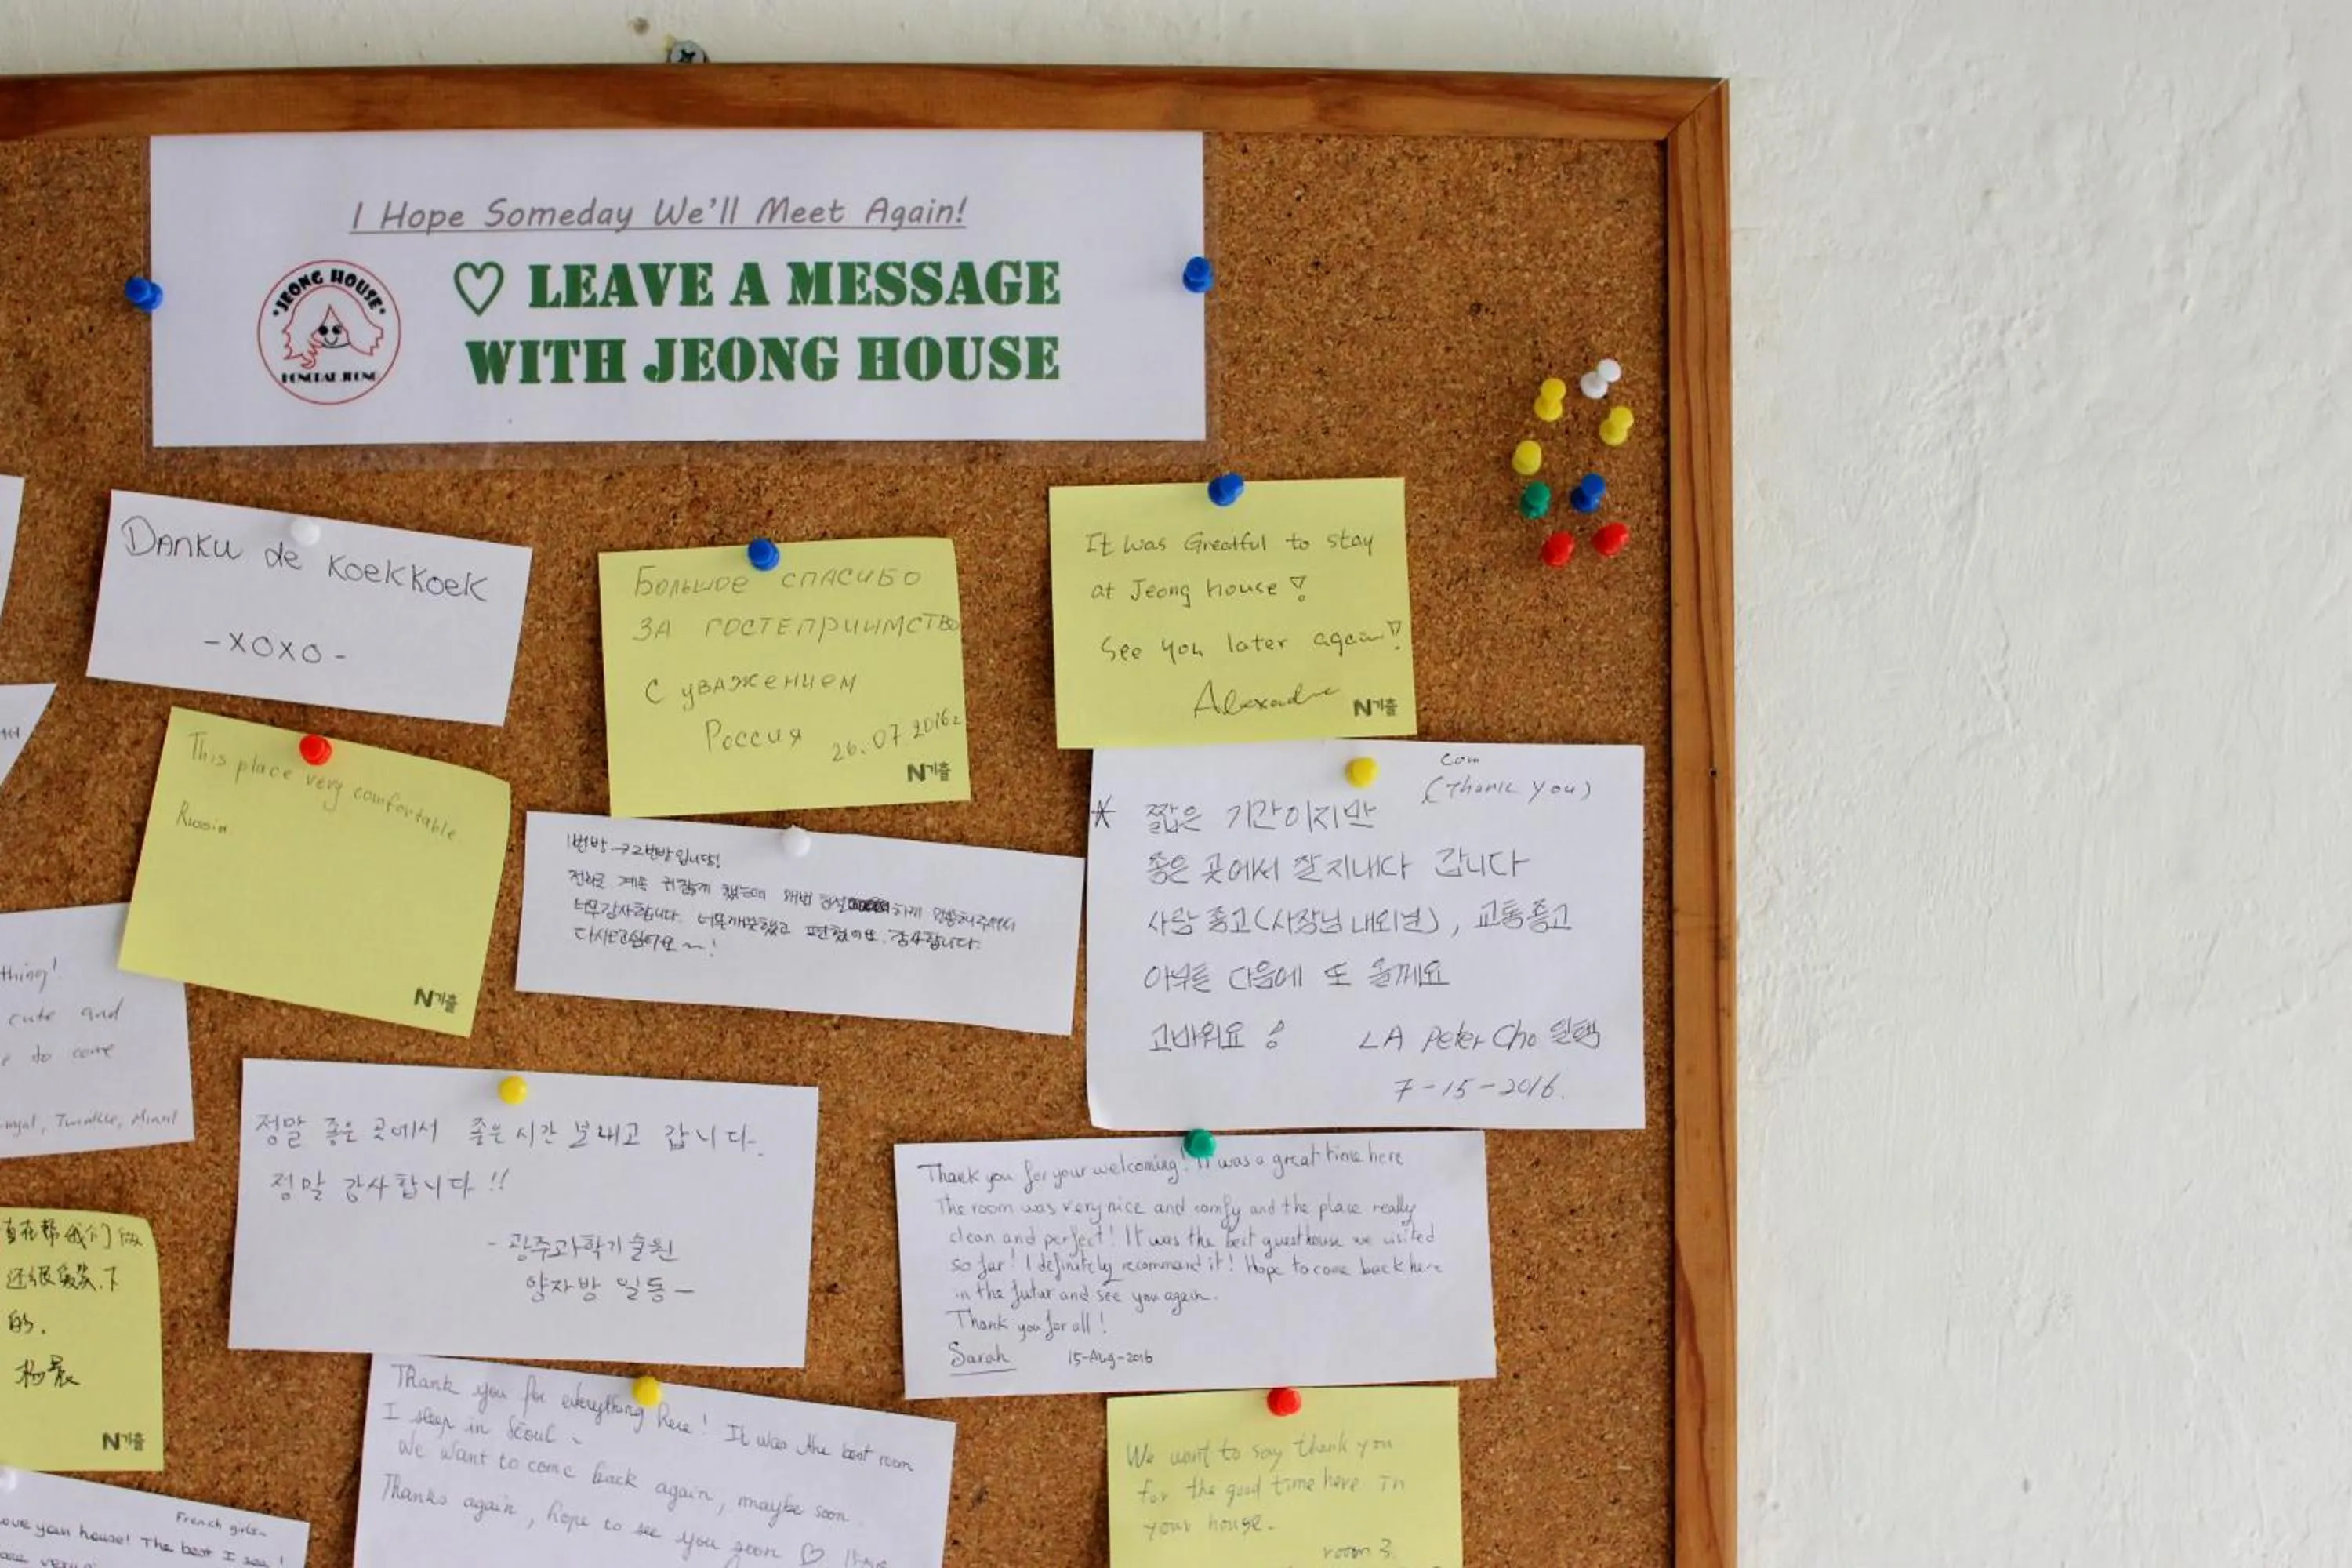 I Hope Someday We'll Meet Again!
♡ LEAVE A MESSAGE
WITH JEONG HOUSE
*JEONG HOUSE*
HONGDAE JEONG
Danku de Koekkoek
-xoxo-
Большое спасибо
за гостеприимство
С уважением
Россия 26.07.2016г
N기출
It was Greatful to stay
at Jeong house!
See you later again!
N기출
This place very comfortable
Russia
N기출
1번방→2번방입니다!
너무감사합니다.
감사합니다.
Com
(Thank you)
* 짧은 기간이지만
좋은 곳에서 잘 지내다 갑니다
사람 좋고(사장님 내외분), 교통좋고
아무튼 다음에 또 올께요
고마워요 !
LA Peter Cho
7-15-2016.
thing!
cute and
to come
정말 좋은 곳에서 좋은 시간 보내고 갑니다.
정말 감사합니다!!
- 광주과학기술원
양자방 일동-
Thank you for your welcoming! It was a great time here
The room was very nice and comfy and the place really
clean and perfect! It was the best guesthouse we visited
so far! I definitely recommand it! Hope to come back here
in the futur and see you again.
Thank you for all!
Sarah 15-Aug-2016
在帮我们做
下
的.
杨晨
N기출
Thank you for everything here! It was the best room
I sleep in Séoul ~
We want to come back again, maybe soon.
Thanks again, hope to see you soon ♡
We want to say thank you
for the good time here in
your house.
room 3.
French girls~
house! The best I see!
very